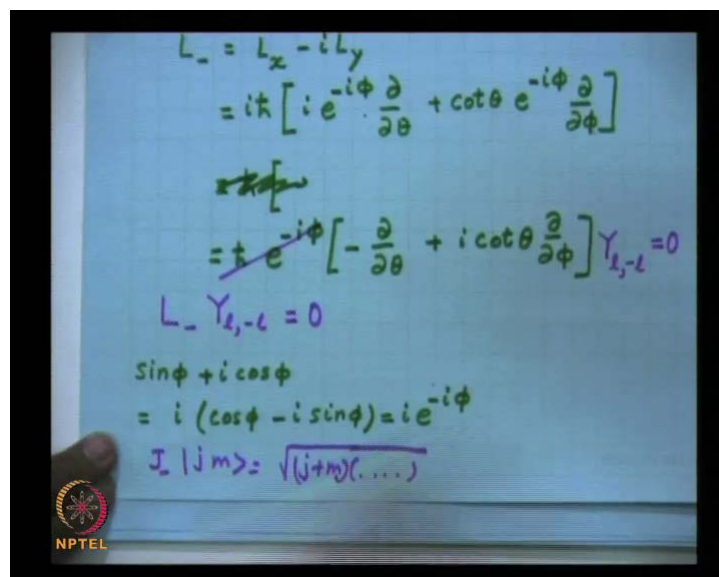 L₋ = Lₓ - i L_y
= iħ [ i e^{-iφ} ∂/∂θ + cot θ e^{-iφ} ∂/∂φ ]
= ħ e^{-iφ} [ - ∂/∂θ + i cot θ ∂/∂φ ] Y_{l,-l} = 0
L₋ Y_{l,-l} = 0
sinφ + i cosφ
= i (cosφ - i sinφ) = i e^{-iφ}
J₋ |j m> = √(j+m)(....)
NPTEL